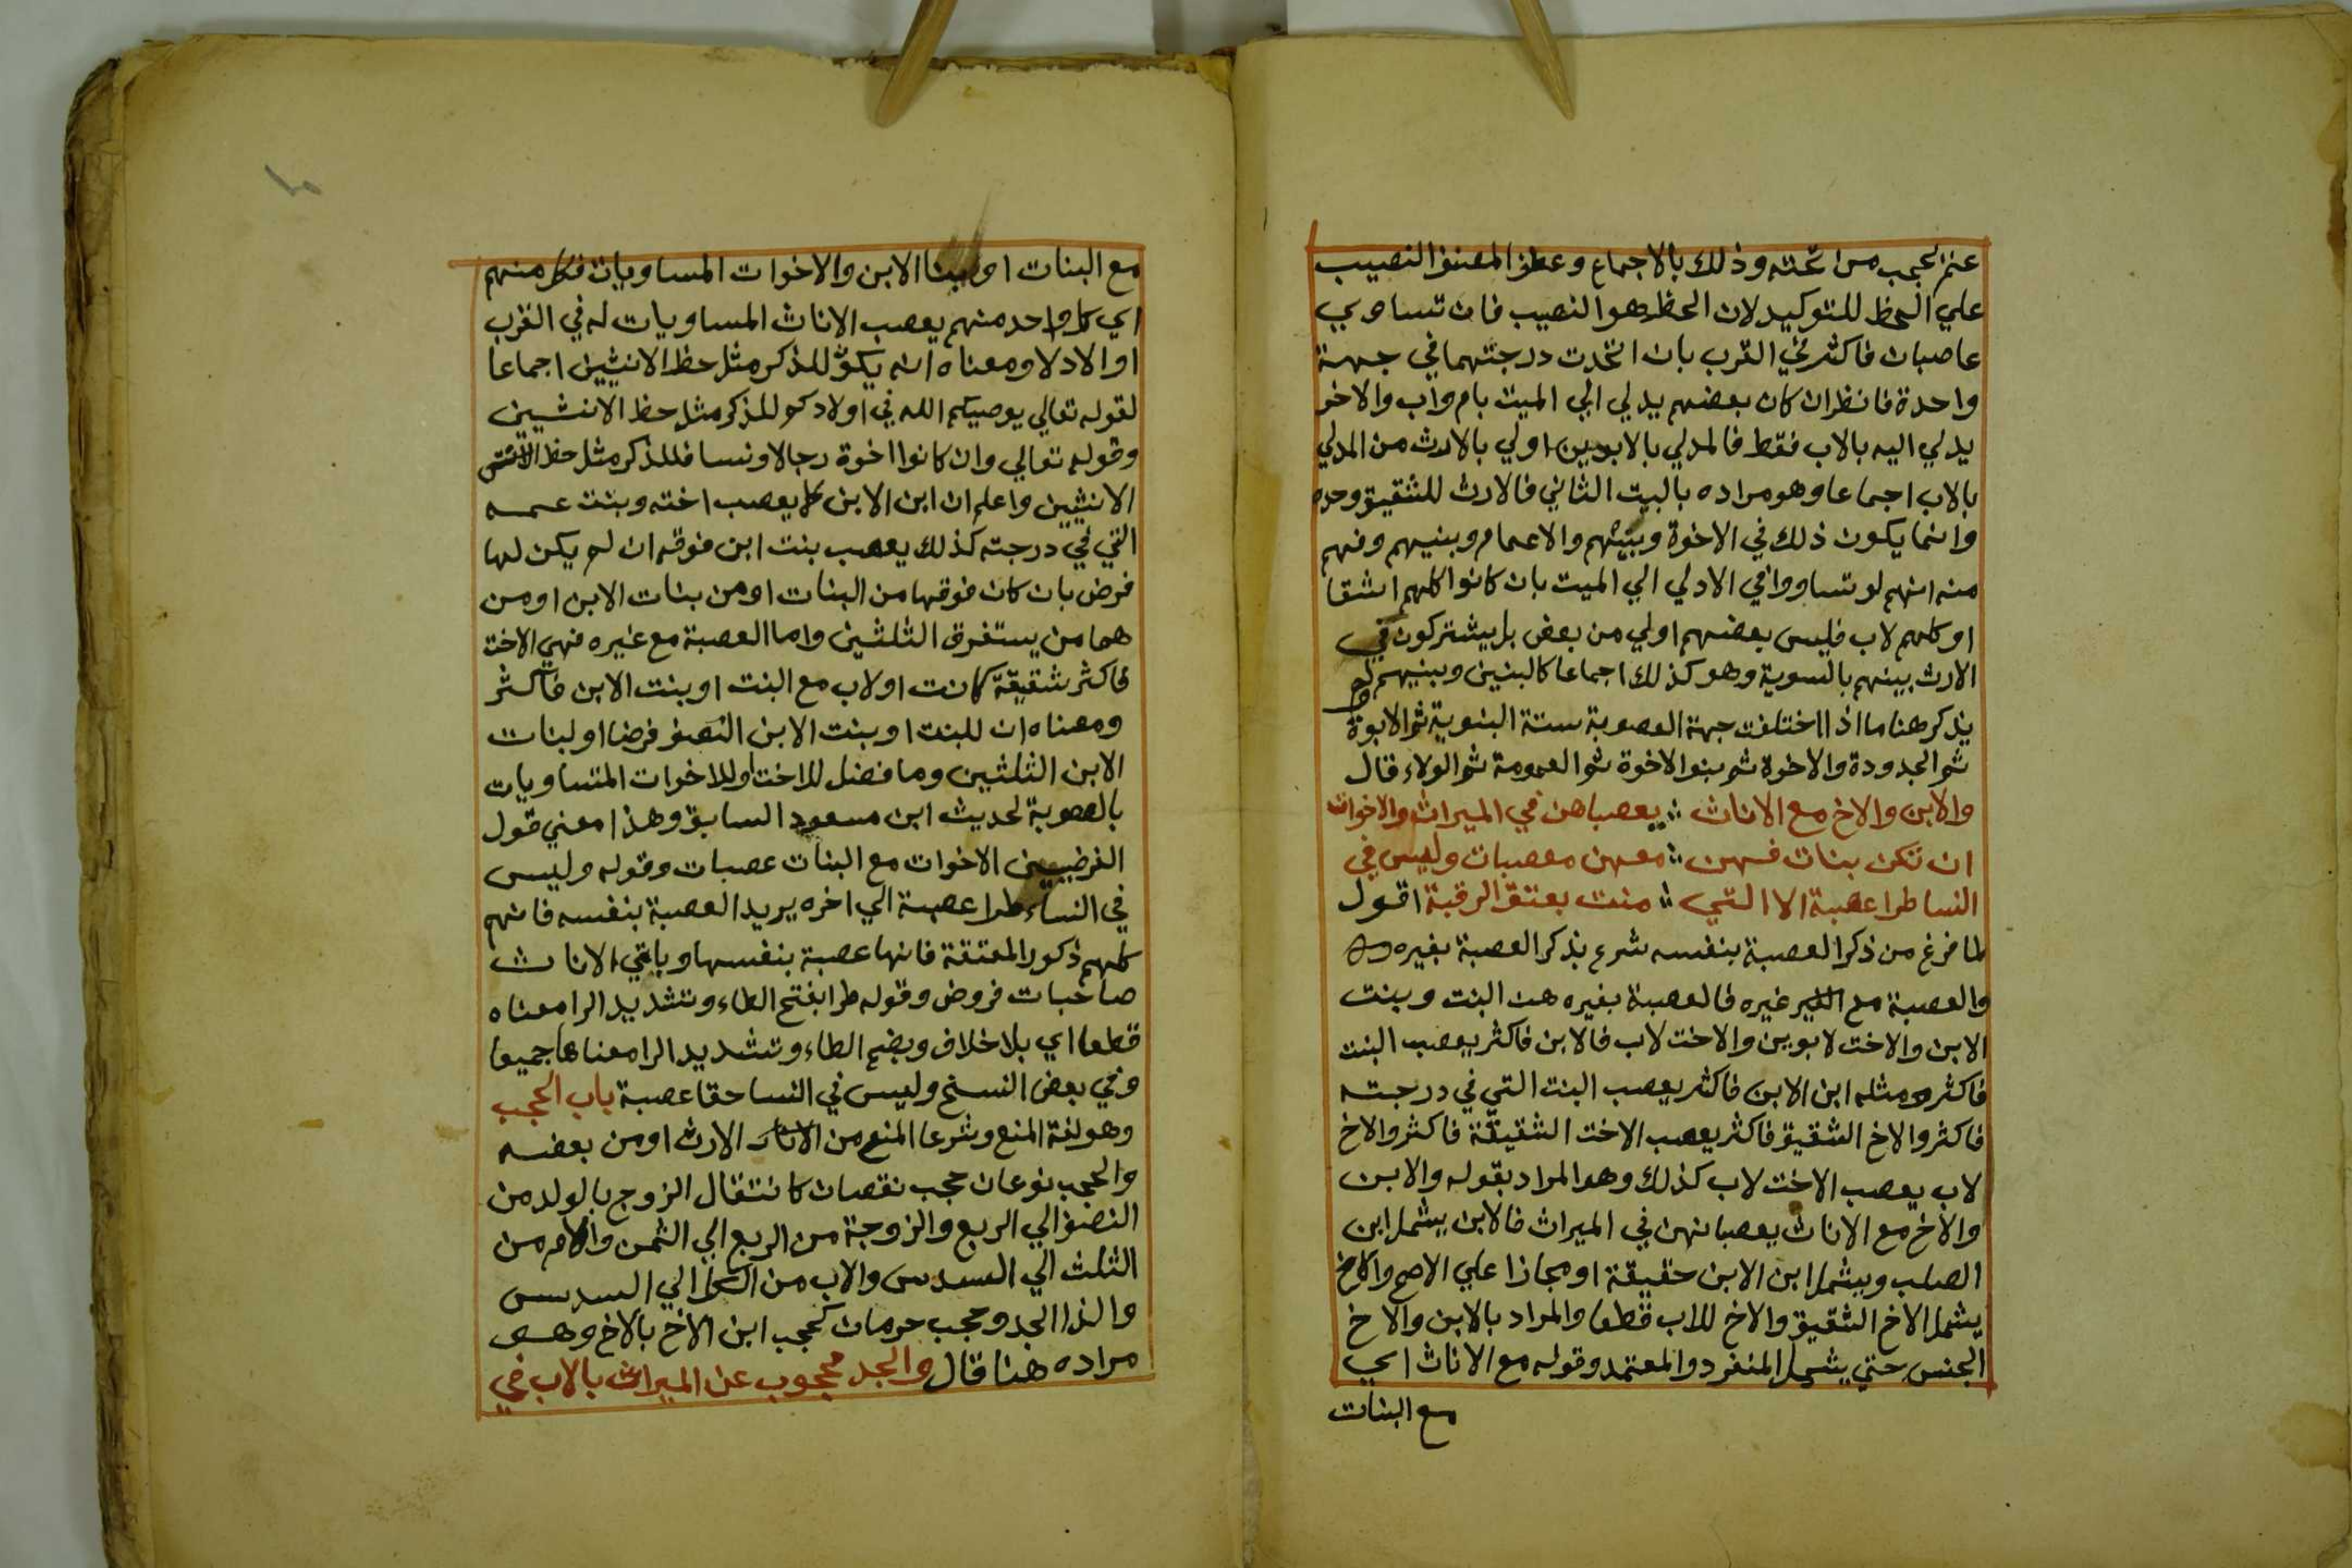 عنه الحجب من تحته وذلك بالاجماع وعطف المصنف النصيب
علي الحظ للتوكيد لان الحظ هو النصيب فان تساوي
عاصبان فاكثر في القرب بان اتحدت درجتهما في جهة
واحدة فانظر ان كان بعضهم يدلي الي الميت بام واب والاخر
يدلي اليه بالاب فقط فالمدلي بالابوين اولي بالارث من المدلي
بالاب اجماعا وهو مراده بالبيت الثاني فالارث للشقيق وحده
وانما يكون ذلك في الاخوة وبنيهم والاعمام وبنيهم وفهم
منه انهم لو تساووا في الادلي الي الميت بان كانوا كلهم اشقا
او كلهم لاب فليس بعضهم اولي من بعض بل يشتركون في
الارث بينهم بالسوية وهو كذلك اجماعا كالبنين وبنيهم لم
يذكر هنا ما اذا اختلفت جهة العصوبة ستة البنوية ثم الابوة
ثم الجدودة والاخوة ثم بنوا الاخوة ثم العمومة ثم الولاء قال
والابن والاخ مع الاناث ؞ يعصباهن في الميراث والاخوات
ان تكن بنات فهن ؞ معهن معصبات وليس في
النسا طرا عصبة الا التي ؞ منت بعتق الرقبة اقول
لما فرغ من ذكر العصبة بنفسه شرع بذكر العصبة بغيره
والعصبة مع الغير غيره فالعصبة بغيره هن البنت وبنت
الابن والاخت لابوين والاخت لاب فالابن فاكثر يعصب البنت
فاكثر ومثله ابن الابن فاكثر يعصب البنت التي في درجته
فاكثر والاخ الشقيق فاكثر يعصب الاخت الشقيقة فاكثر والاخ
لاب يعصب الاخت لاب كذلك وهو المراد بقوله والابن
والاخ مع الاناث يعصبانهن في الميراث فالابن يشمل ابن
الصلب ويشمل ابن الابن حقيقة او مجازا علي الاصح والاخ
يشمل الاخ الشقيق والاخ للاب قطعا والمراد بالابن والاخ
الجنس حتي يشمل المنفرد والمعتمد وقوله مع الاناث اي
مع البنات
مع البنات او بنات الابن والاخوات المساويات فكل منهم
اي كل واحد منهم يعصب الاناث المساويات له في القرب
او الادلا ومعناه انه يكون للذكر مثل حظ الانثيين اجماعا
لقوله تعالي يوصيكم الله في اولادكم للذكر مثل حظ الانثيين
وقوله تعالي وان كانوا اخوة رجالا ونسا فللذكر مثل حظ
الانثيين واعلم ان ابن الابن كما يعصب اخته وبنت عمه
التي في درجته كذلك يعصب بنت ابن فوقه ان لم يكن لها
فرض بان كان فوقها من البنات او من بنات الابن او من
هما من يستغرق الثلثين واما العصبة مع غيره فهي الاخت
فاكثر شقيقة كانت او لاب مع البنت او بنت الابن فاكثر
ومعناه ان للبنت او بنت الابن النصف فرضا او لبنات
الابن الثلثين وما فضل للاخت او للاخوات المتساويات
بالعصوبة لحديث ابن مسعود السابق وهذا معني قول
الفرضيين الاخوات مع البنات عصبات وقوله وليس
في النساء طرا عصبة الي اخره يريد العصبة بنفسه فانهم
كلهم ذكور الا المعتقة فانها عصبة بنفسها وباقي الاناث
صاحبات فروض وقوله طرا بفتح الطاء وتشديد الرا معناه
قطعا اي بلا خلاف وبضم الطاء وتشديد الرا معناها جميعا
وفي بعض النسخ وليس في النسا حقا عصبة باب الحجب
وهو لغة المنع وشرعا المنع من الارث او من بعضه
والحجب نوعان حجب نقصان كانتقال الزوج بالولد من
النصف الي الربع والزوجة من الربع الي الثمن والام من
الثلث الي السدس والاب من الكل الي السدس
والذا الجد وحجب حرمان كحجب ابن الاخ بالاخ وهو
مراده هنا قال والجد محجوب عن الميراث بالاب في